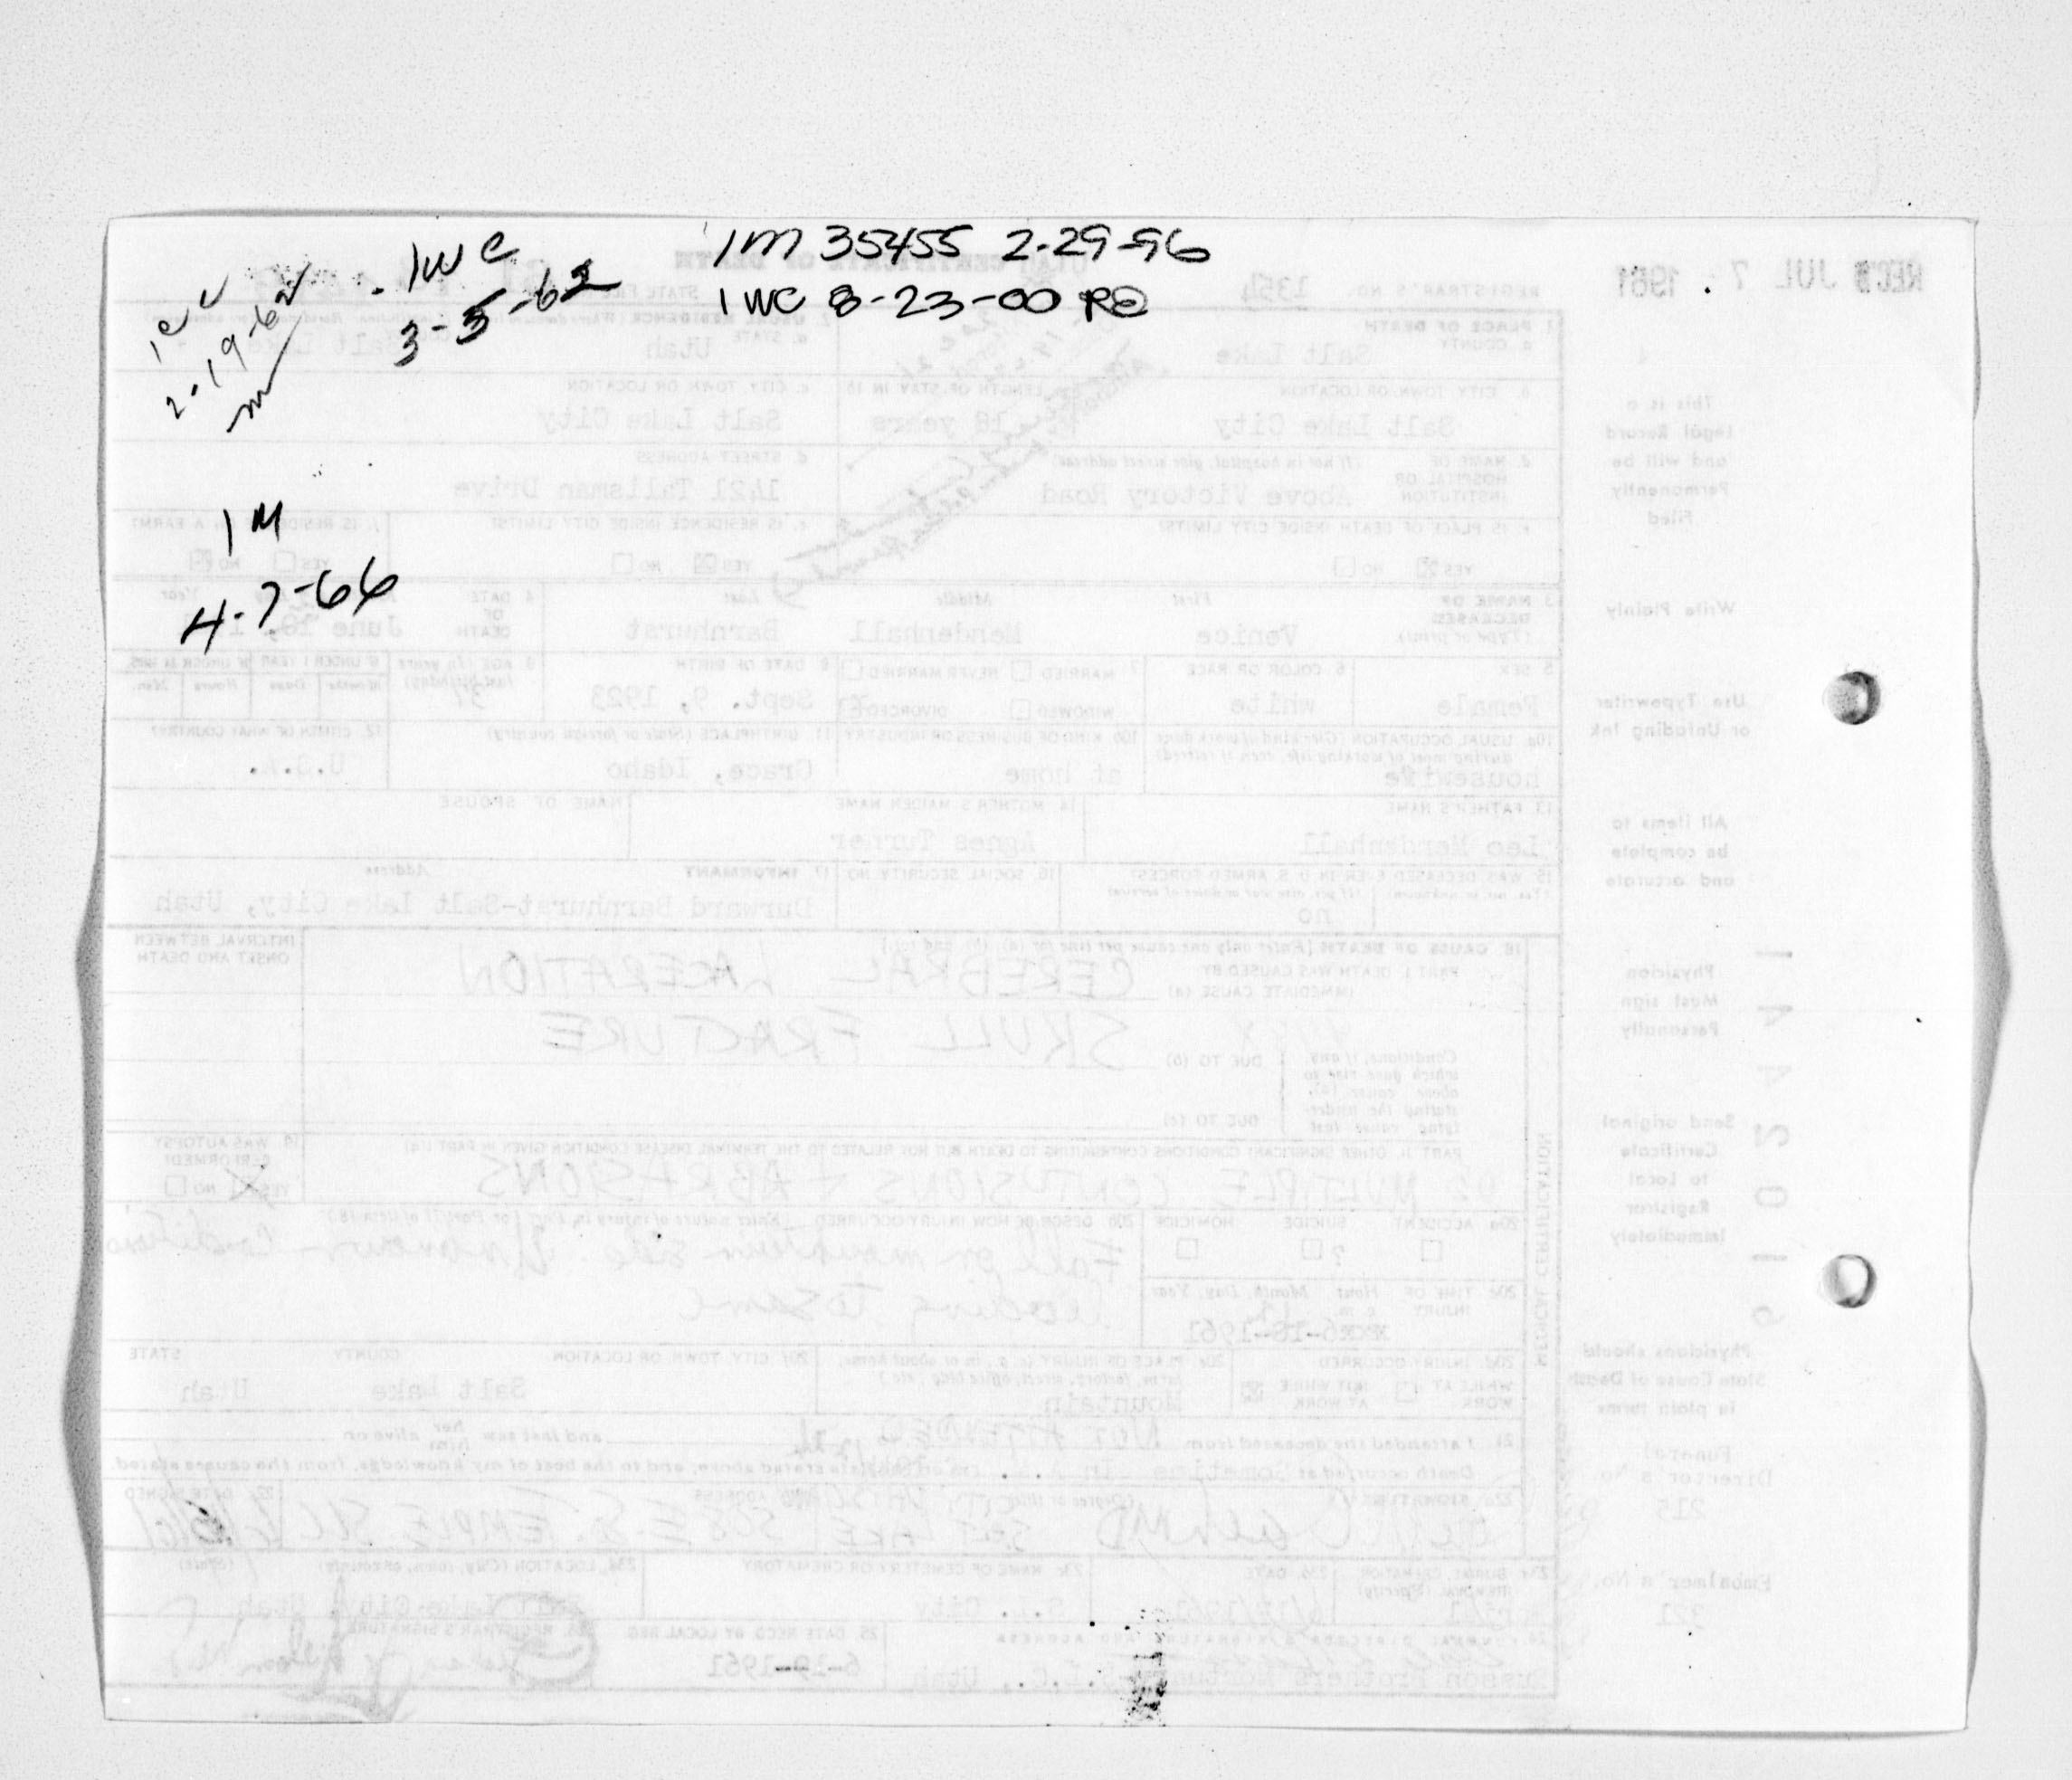 1M 35455 2-29-96
1WC 8-23-00 RE
1WC
3-5-62
1M
4-7-66
REC'D JUL 7 1961
CERTIFICATE OF DEATH
REGISTRAR'S NO. 1354
STATE FILE
1. PLACE OF DEATH
a. COUNTY
Salt Lake
2. USUAL RESIDENCE
a. STATE
Utah
Salt Lake
b. CITY, TOWN, OR LOCATION
Salt Lake City
LENGTH OF STAY IN 1b
18 years
c. CITY, TOWN OR LOCATION
Salt Lake City
d. NAME OF HOSPITAL OR INSTITUTION
If not in hospital, give street address
Above Victory Road
d. STREET ADDRESS
1421 Talisman Drive
IS PLACE OF DEATH INSIDE CITY LIMITS?
YES NO
e. IS RESIDENCE INSIDE CITY LIMITS?
YES NO
f. IS RESIDENCE ON A FARM?
YES NO
3. NAME OF DECEASED
(Type or print)
First Middle Last
Venice Mendenhall Barnhurst
4. DATE OF DEATH
June
5. SEX
Female
6. COLOR OR RACE
white
7. MARRIED NEVER MARRIED
WIDOWED DIVORCED
8. DATE OF BIRTH
Sept. 9, 1923
9. AGE (In years last birthday)
37
IF UNDER 1 YEAR IF UNDER 24 HRS.
Months Days Hours Min.
10a. USUAL OCCUPATION (Give kind of work done during most of working life, even if retired)
housewife
10b. KIND OF BUSINESS OR INDUSTRY
at home
11. BIRTHPLACE (State or foreign country)
Grace, Idaho
12. CITIZEN OF WHAT COUNTRY?
U.S.A.
13. FATHER'S NAME
Leo Mendenhall
14. MOTHER'S MAIDEN NAME
Agnes Turner
NAME OF SPOUSE
15. WAS DECEASED EVER IN U.S. ARMED FORCES?
(Yes, no, or unknown) (If yes, give war or dates of service)
no
16. SOCIAL SECURITY NO.
17. INFORMANT Address
Durward Barnhurst-Salt Lake City, Utah
18. CAUSE OF DEATH [Enter only one cause per line for (a), (b), and (c).]
PART I. DEATH WAS CAUSED BY
IMMEDIATE CAUSE (a)
CEREBRAL LACERATION
INTERVAL BETWEEN ONSET AND DEATH
SKULL FRACTURE
Conditions, if any, which gave rise to above cause (a), stating the underlying cause last
DUE TO (b)
DUE TO (c)
PART II. OTHER SIGNIFICANT CONDITIONS CONTRIBUTING TO DEATH BUT NOT RELATED TO THE TERMINAL DISEASE CONDITION GIVEN IN PART I(a)
MULTIPLE CONTUSIONS + ABRASIONS
19. WAS AUTOPSY PERFORMED?
YES NO
20a. ACCIDENT SUICIDE HOMICIDE
?
20b. DESCRIBE HOW INJURY OCCURRED (Enter nature of injury in Part I or Part II of item 18)
Fall on mountain side. Unknown Conditions
leading to same
20c. TIME OF INJURY
Hour Month, Day, Year
6-18-1961
20d. INJURY OCCURRED
WHILE AT WORK NOT WHILE AT WORK
20e. PLACE OF INJURY (e.g., in or about home, farm, factory, street, office bldg., etc.)
Mountain
20f. CITY, TOWN OR LOCATION COUNTY STATE
Salt Lake Utah
21. I attended the deceased from NOT ATTENDED and last saw her/him alive on
Death occurred at Sometime in A.M. on the date stated above, and to the best of my knowledge, from the causes stated.
22a. SIGNATURE
(Degree or title)
CITY PHYSICIAN
SALT LAKE
ADDRESS
508 E. SO. TEMPLE, SLC
22c. DATE SIGNED
23a. BURIAL, CREMATION, REMOVAL (Specify)
23b. DATE
23c. NAME OF CEMETERY OR CREMATORY
S.L. City
23d. LOCATION (City, town, or county) (State)
Salt Lake City Utah
24. FUNERAL DIRECTOR'S SIGNATURE AND ADDRESS
Brothers S.L.C., Utah
25. DATE RECD BY LOCAL REG.
6-19-1961
26. REGISTRAR'S SIGNATURE
MEDICAL CERTIFICATION
This is a
Legal Record
and will be
Permanently
Filed
Write Plainly
Use Typewriter
or Unfading Ink
All items to
be complete
and accurate
Physician
Must sign
Personally
Send original
Certificate
to Local
Registrar
Immediately
Physicians should
State Cause of Death
in plain terms
Funeral
Director's No.
215
Embalmer's No.
321